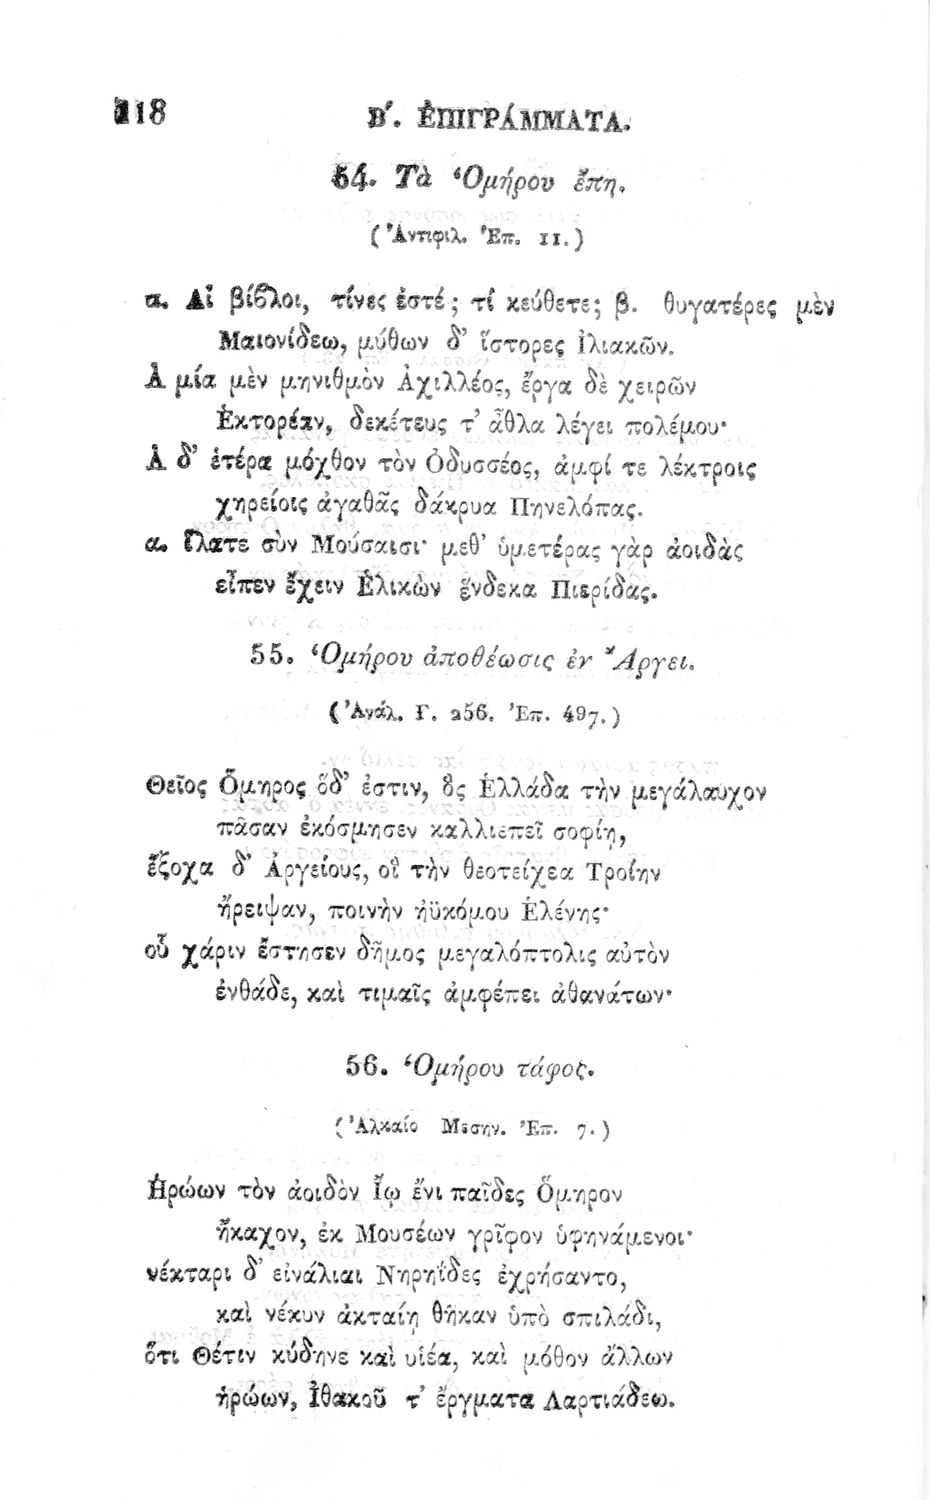 118 Β΄. ἘΠΙΓΡΆΜΜΑΤΑ.
54. Τὰ Ὁμήρου ἔπη.
(Ἀντιφιλ. Ἐπ. 11.)
α. Αἱ βίϐλοι, τίνες ἐστέ; τί κεύθετε; β. θυγατέρες μὲν
Μαιονίδεω, μύθων δ’ ἵστορες Ἰλιακῶν.
Ἁ μία μὲν μηνιθμὸν Ἀχιλλέος, ἔργα δὲ χειρῶν
Ἑκτορέαν, δεκέτευς τ’ ἆθλα λέγει πολέμου·
Ἁ δ’ ἑτέρα μόχθον τὸν Ὀδυσσέος, ἀμφί τε λέκτροις
χηρείοις ἀγαθᾶς δάκρυα Πηνελόπας.
α. Ἵλατε σὺν Μούσαισι· μεθ’ ὑμετέρας γὰρ ἀοιδὰς
εἶπεν ἔχειν Ἑλικὼν ἕνδεκα Πιερίδας.
55. Ὁμήρου ἀποθέωσις ἐν Ἄργει.
(Ἀνάλ. Γ. 256. Ἐπ. 497.)
Θεῖος Ὅμηρος ὅδ’ ἐστιν, ὃς Ἑλλάδα τὴν μεγάλαυχον
πᾶσαν ἐκόσμησεν καλλιεπεῖ σοφίῃ,
ἔξοχα δ’ Ἀργείους, οἳ τὴν θεοτείχεα Τροίην
ἤρειψαν, ποινὴν ἠϋκόμου Ἑλένης·
οὗ χάριν ἔστησεν δῆμος μεγαλόπτολις αὐτὸν
ἐνθάδε, καὶ τιμαῖς ἀμφέπει ἀθανάτων·
56. Ὁμήρου τάφος.
(Ἀλκαίο Μεσην. Ἐπ. 7.)
Ἡρώων τὸν ἀοιδὸν Ἴῳ ἔνι παῖδες Ὅμηρον
ἤκαχον, ἐκ Μουσέων γρῖφον ὑφηνάμενοι·
νέκταρι δ’ εἰνάλιαι Νηρηΐδες ἐχρήσαντο,
καὶ νέκυν ἀκταίῃ θῆκαν ὑπὸ σπιλάδι,
ὅτι Θέτιν κύδηνε καὶ υἱέα, καὶ μόθον ἄλλων
ἡρώων, Ἰθακοῦ τ’ ἔργματα Λαρτιάδεω.